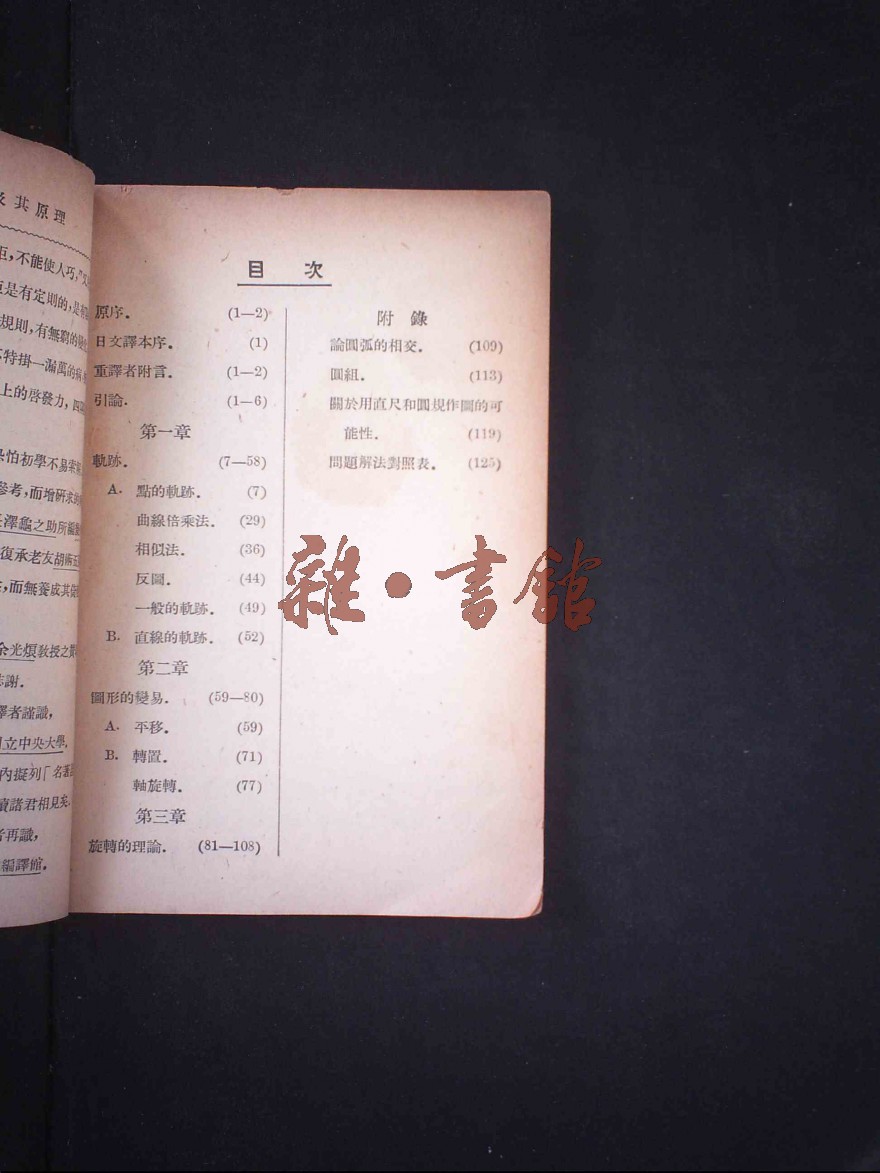 及其原理
不能使人巧,
是有定則的,是
規則,有無窮的
特掛一漏萬的病
上的啓發力,
怕初學不易索
參考,而增研求
澤龜之助所編
復承老友胡術五
,而無養成其
余光烺教授之
誌謝.
譯者謹識,
國立中央大學,
內擬列「名著
讀諸君相見矣.
者再識,
編譯館.
目 次
原序. (1—2)
日文譯本序. (1)
重譯者附言. (1—2)
引論. (1—6)
第一章
軌跡. (7—58)
A. 點的軌跡. (7)
曲線倍乘法. (29)
相似法. (36)
反圖. (44)
一般的軌跡. (49)
B. 直線的軌跡. (52)
第二章
圖形的變易. (59—80)
A. 平移. (59)
B. 轉置. (71)
軸旋轉. (77)
第三章
旋轉的理論. (81—108)
附 錄
論圓弧的相交. (109)
圓組. (113)
關於用直尺和圓規作圖的可
能性. (119)
問題解法對照表. (125)
雜·書館